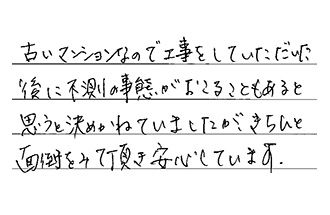 古いマンションなので工事をしていただいた
後に不測の事態がおこることもあると
思うと決めかねていましたが、きちんと
面倒をみて頂き安心しています。